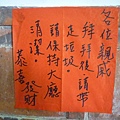 各位親戚
拜拜後請帶
走垃圾。
請保持大廳
清潔。
恭喜發財